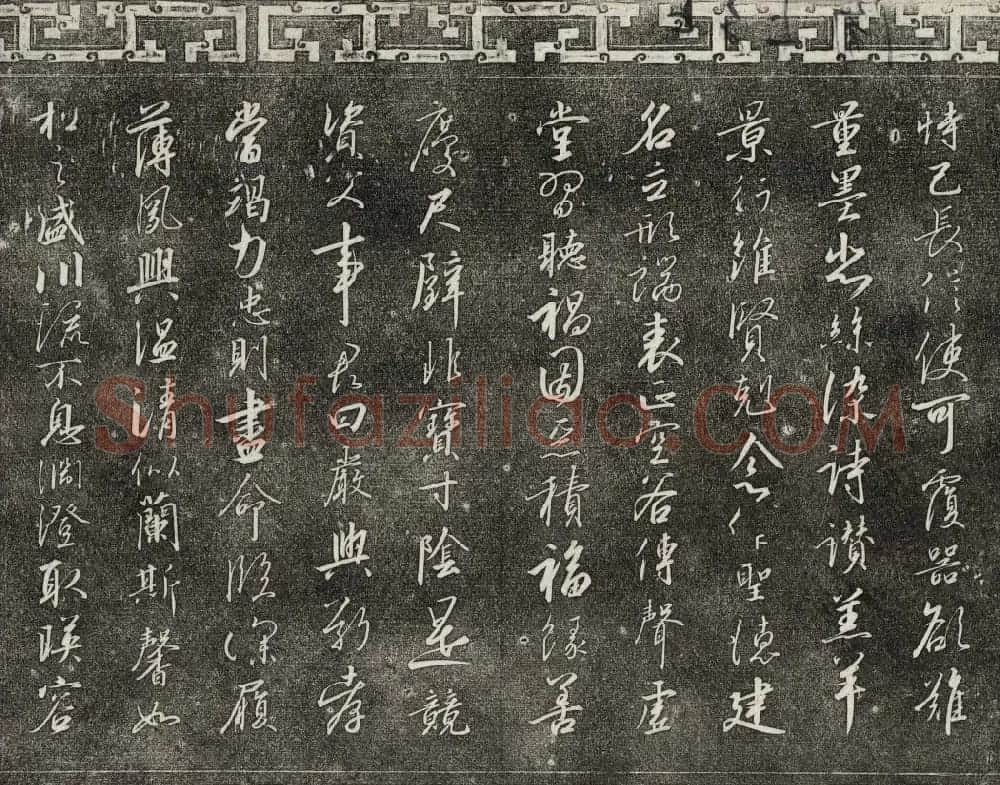 恃己長信使可覆器欲難
量墨悲絲染詩讚羔羊
景行維賢剋念作聖德建
名立形端表正空谷傳聲虛
堂習聽禍因惡積福緣善
慶尺璧非寶寸陰是競
資父事君曰嚴與敬孝
當竭力忠則盡命臨深履
薄夙興溫凊似蘭斯馨如
松之盛川流不息淵澄取暎容
Shufaziliao.COM